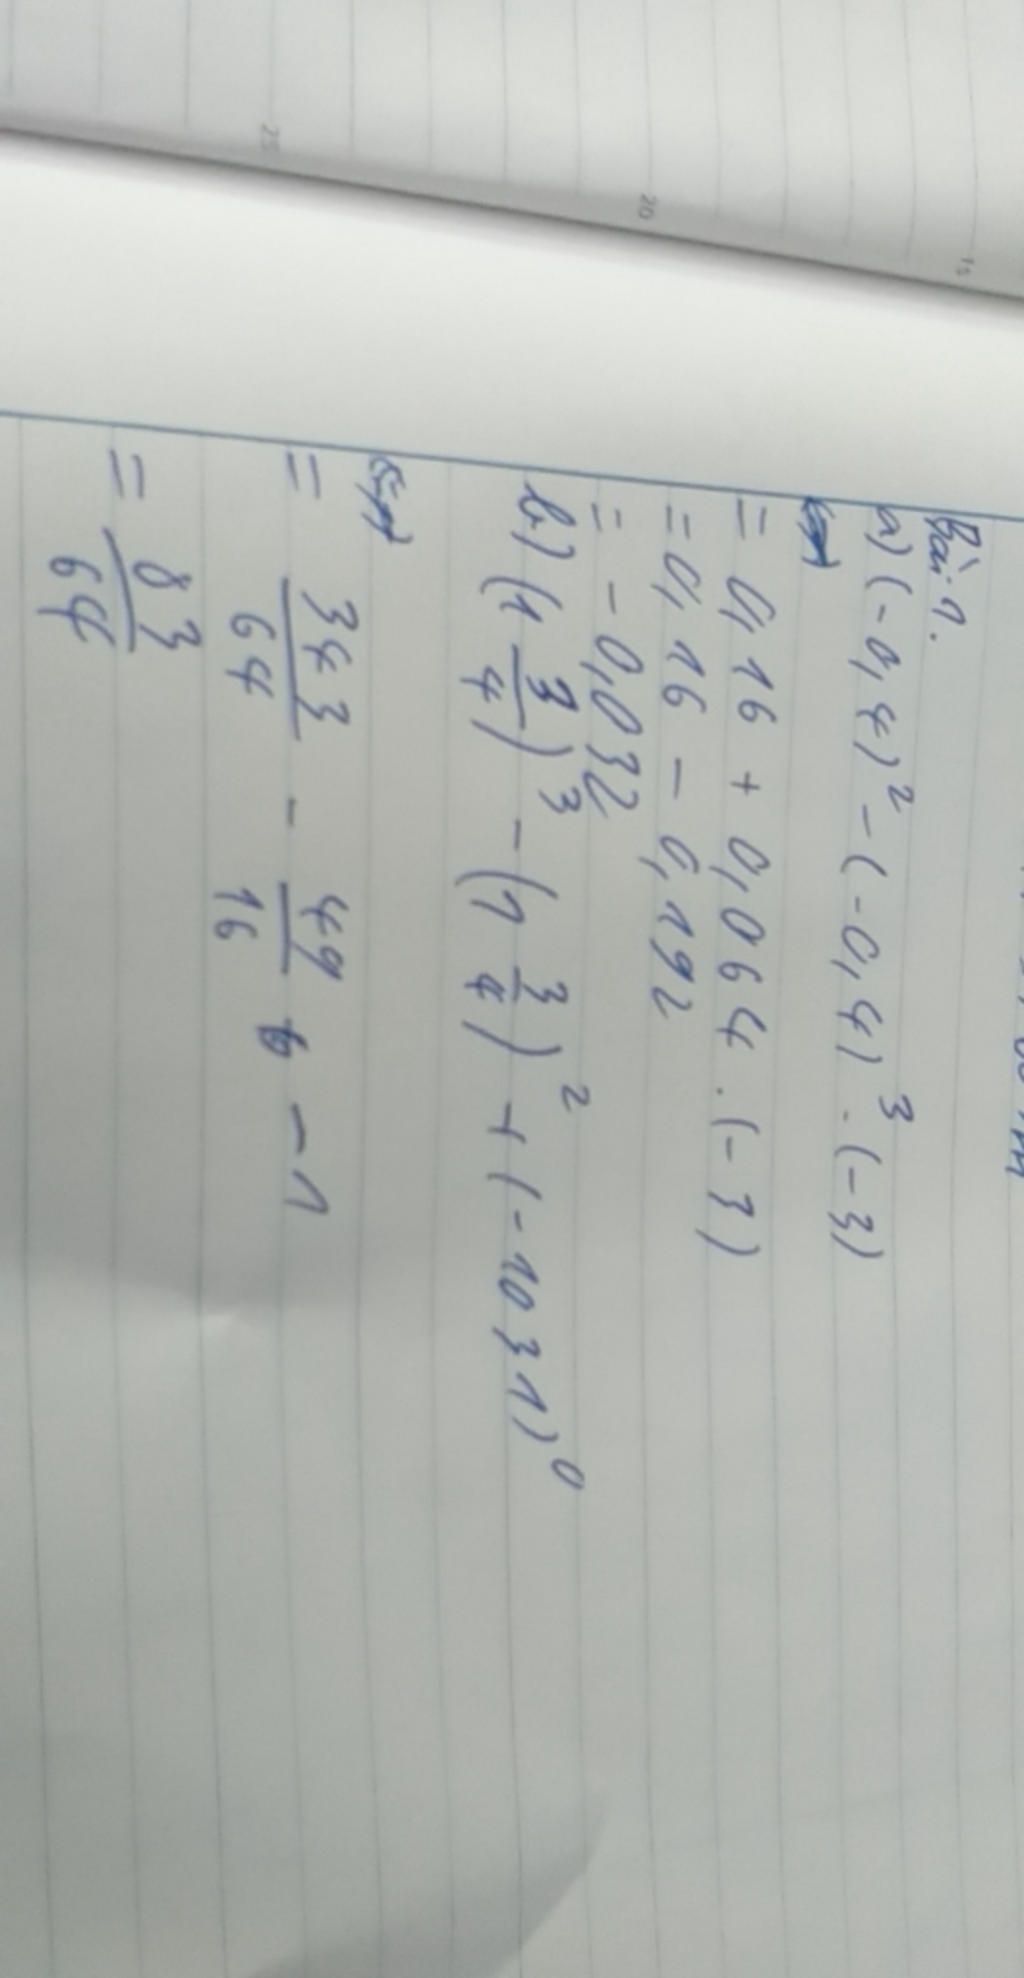 Bài 1.
a) (-0,4)² - (-0,4)³ . (-3)
= 0,16 + 0,064 . (-3)
= 0,16 - 0,192
= -0,032
b) (1 3/4)³ - (1 3/4)² + (-1031)⁰
= 343/64 - 49/16 - 1
= 83/64
25
20
15